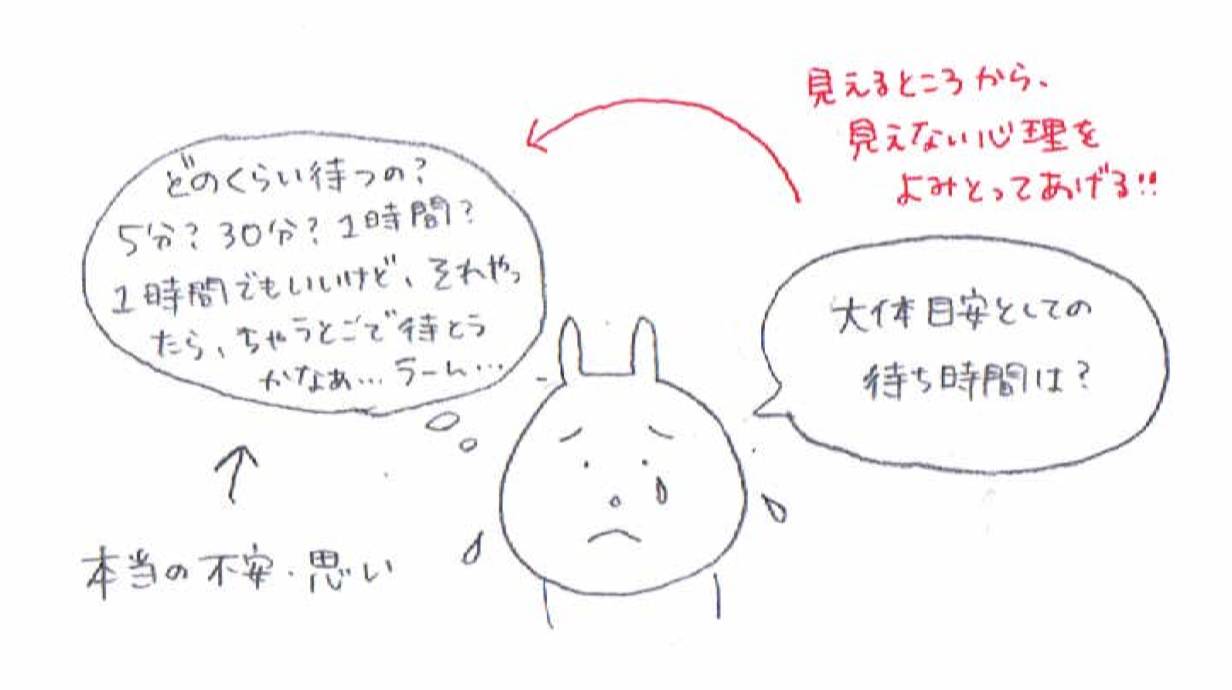 見えるところから、
見えない心理を
よみとってあげる!!
どのくらい待つの?
5分?30分?1時間?
1時間でもいいけど、それやっ
たら、ちゃうとこで待とう
かなぁ…うーん…
大体目安としての
待ち時間は?
本当の不安・思い